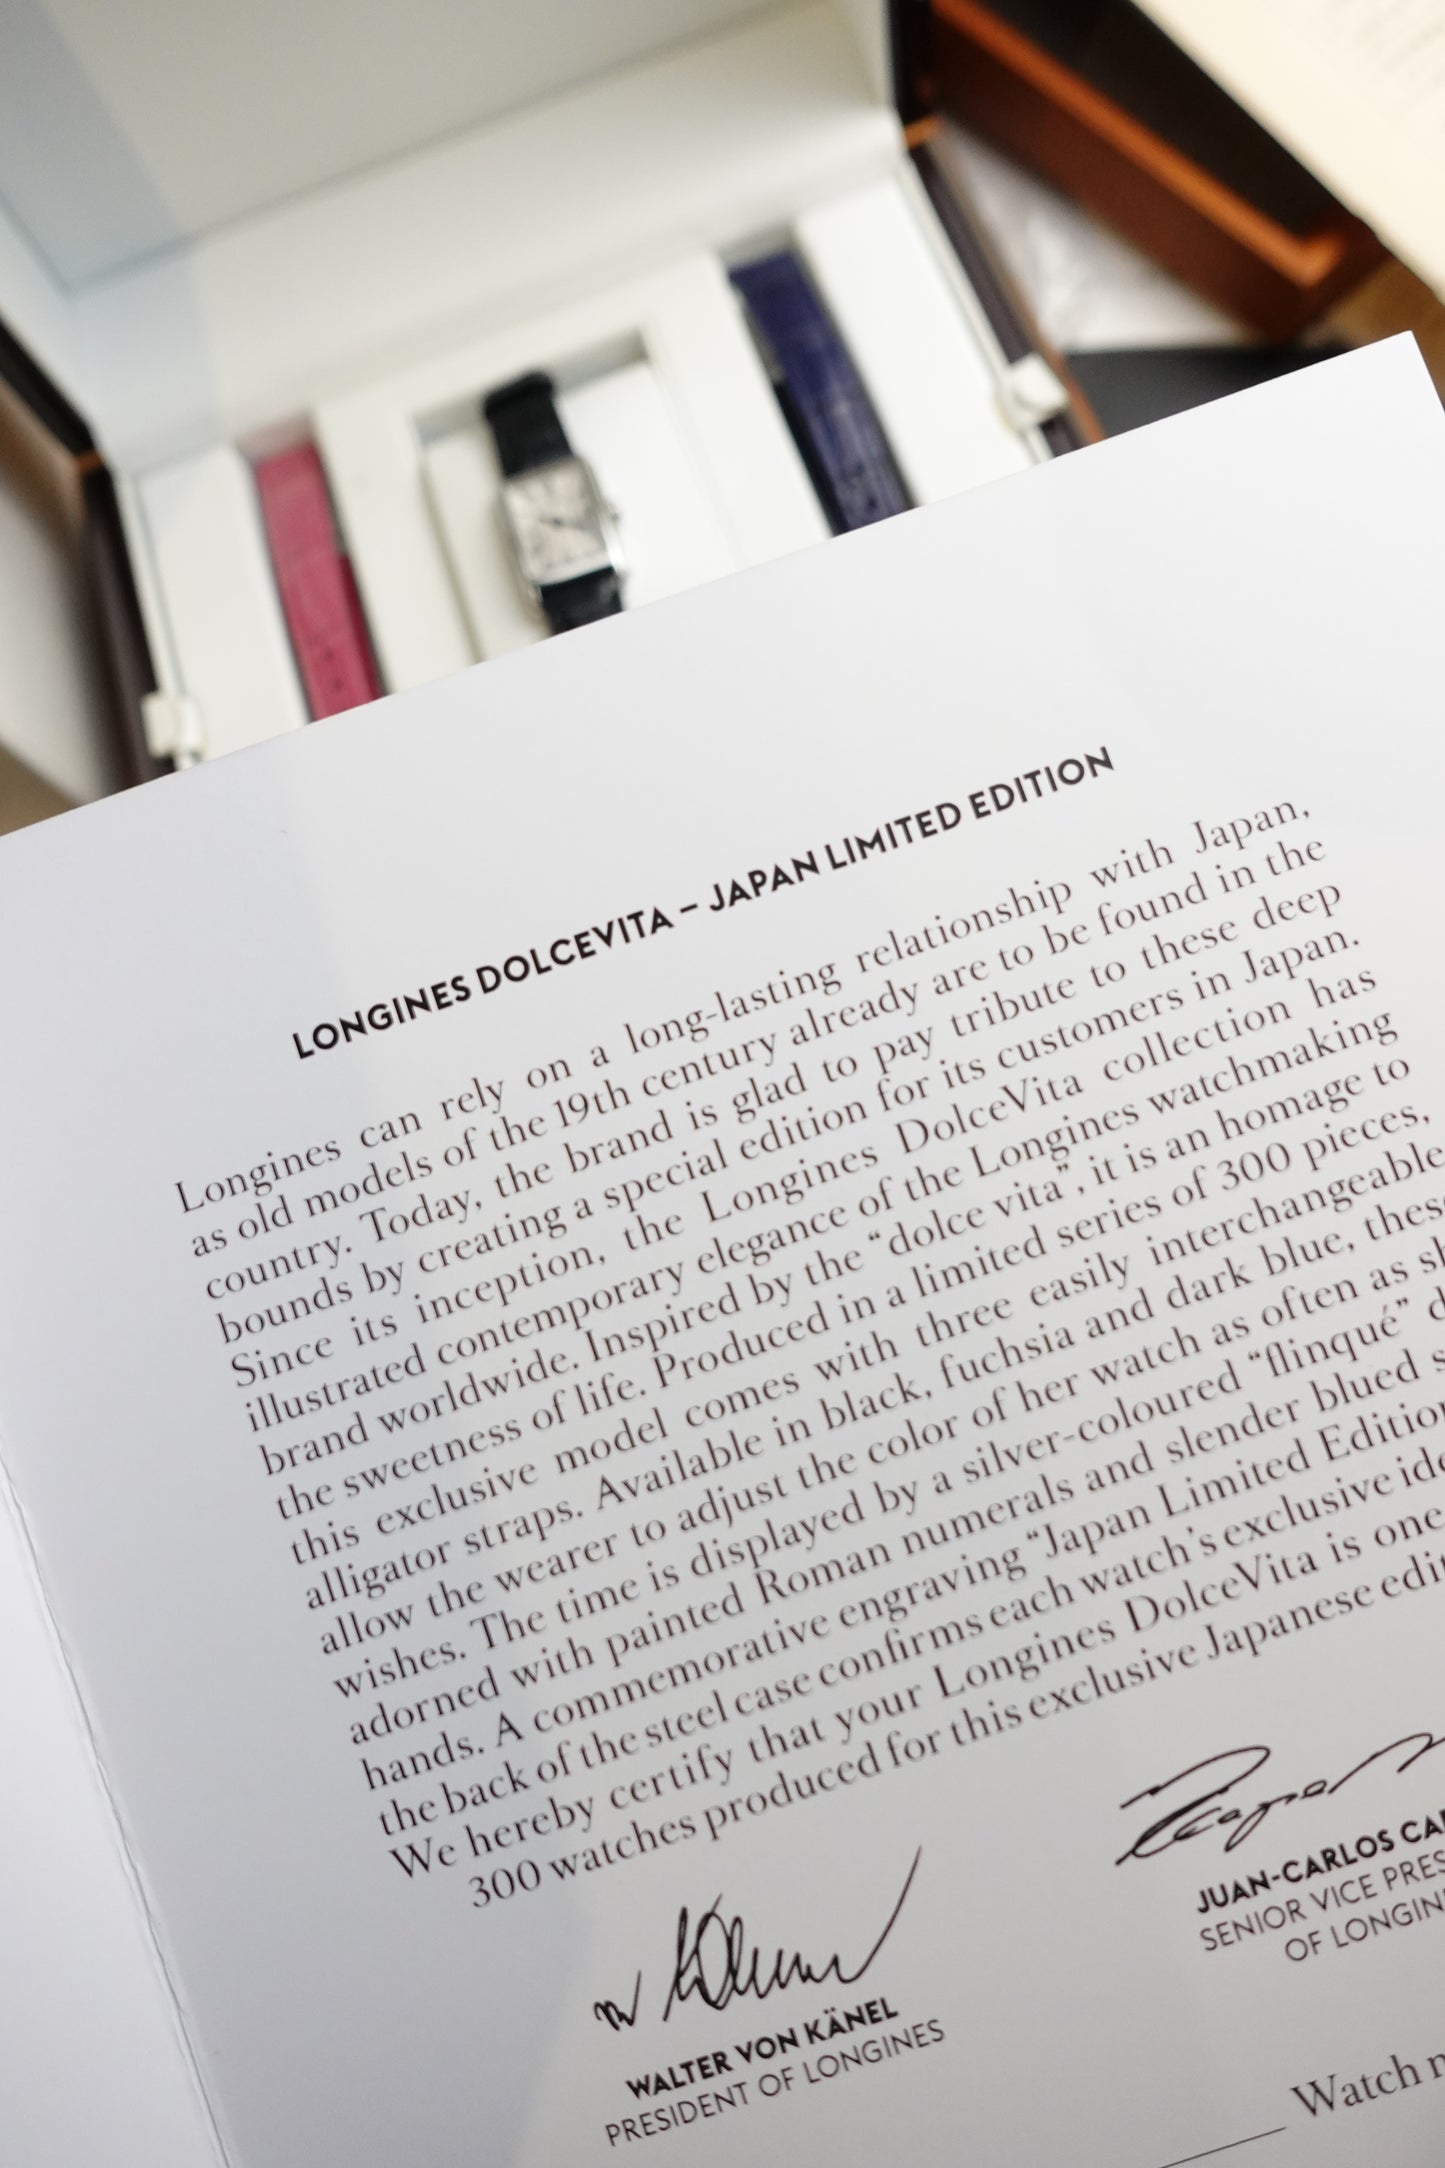 LONGINES DOLCEVITA – JAPAN LIMITED EDITION
Longines can rely on a long-lasting relationship with Japan,
as old models of the 19th century already are to be found in the
country. Today, the brand is glad to pay tribute to these deep
bounds by creating a special edition for its customers in Japan.
Since its inception, the Longines DolceVita collection has
illustrated contemporary elegance of the Longines watchmaking
brand worldwide. Inspired by the “dolce vita”, it is an homage to
the sweetness of life. Produced in a limited series of 300 pieces,
this exclusive model comes with three easily interchangeable
alligator straps. Available in black, fuchsia and dark blue, these
allow the wearer to adjust the color of her watch as often as
wishes. The time is displayed by a silver-coloured “flinqué”
adorned with painted Roman numerals and slender blued
hands. A commemorative engraving “Japan Limited Edition
the back of the steel case confirms each watch’s exclusive
We hereby certify that your Longines DolceVita is one
300 watches produced for this exclusive Japanese
WALTER VON KÄNEL
PRESIDENT OF LONGINES
JUAN-CARLOS
SENIOR VICE
OF
Watch